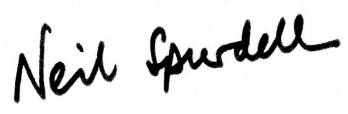 Neil Spurdell